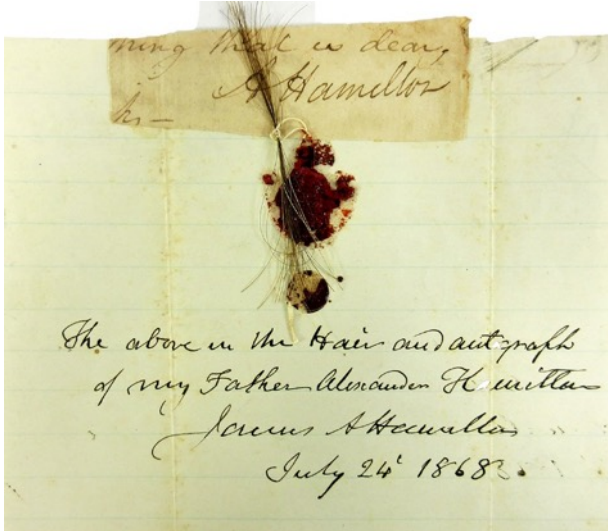 ning that is dear,
A Hamilton
The above is the Hair and autograph
of my Father Alexander Hamilton
James A Hamilton
July 24 1868